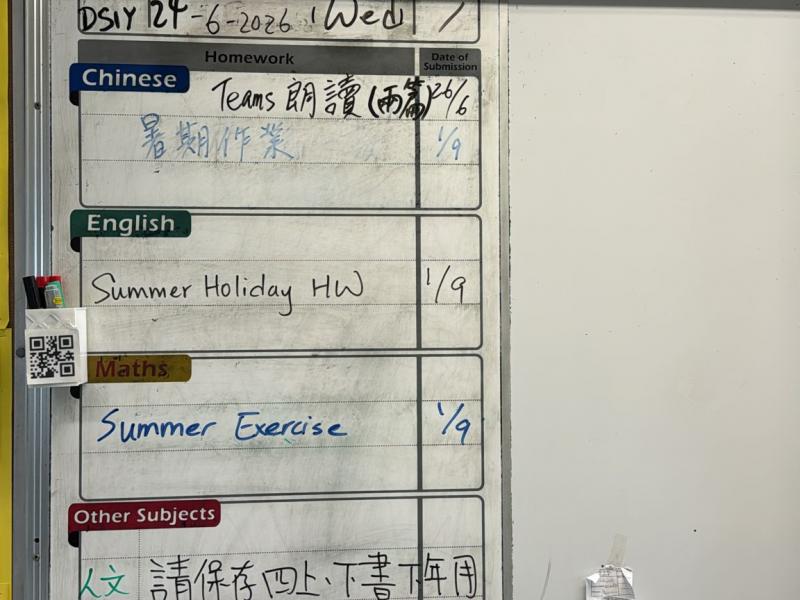 DSIY 24-6-2026 (Wed)
Homework Date of Submission
Chinese
Teams 朗讀(兩篇) 26/6
暑期作業 1/9
English
Summer Holiday HW 1/9
Maths
Summer Exercise 1/9
Other Subjects
人文 請保存四上、下書下年用